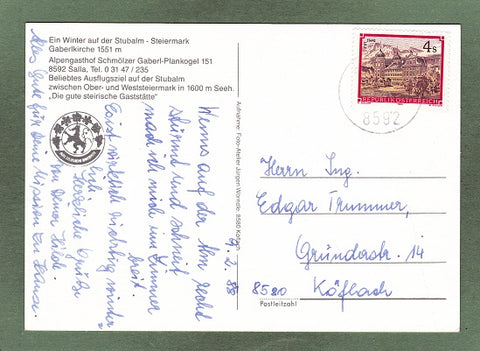 Ein Winter auf der Stubalm - Steiermark
Gaberlkirche 1551 m
Alpengasthof Schmölzer Gaberl-Plankogel 151
8592 Salla, Tel. 0 31 47 / 235
Beliebtes Ausflugsziel auf der Stubalm
zwischen Ober- und Weststeiermark in 1600 m Seeh.
„Die gute steirische Gaststätte"
Aufnahme: Foto-Atelier Jürgen
8580 Köflach
4 S
REPUBLIK ÖSTERREICH
8592
9. 2. 88
Wenns auf der Alm recht
stürmt und schneit
mach ich mich im Zimmer
breit.
Es ist wirklich richtig winter
lich
Herzliche Grüße
von Deiner Hilde.
Alles Gute für Deine Mission zu Hause.
Herrn Ing.
Edgar Trummer,
Gründerstr. 14
8580 Köflach
Postleitzahl